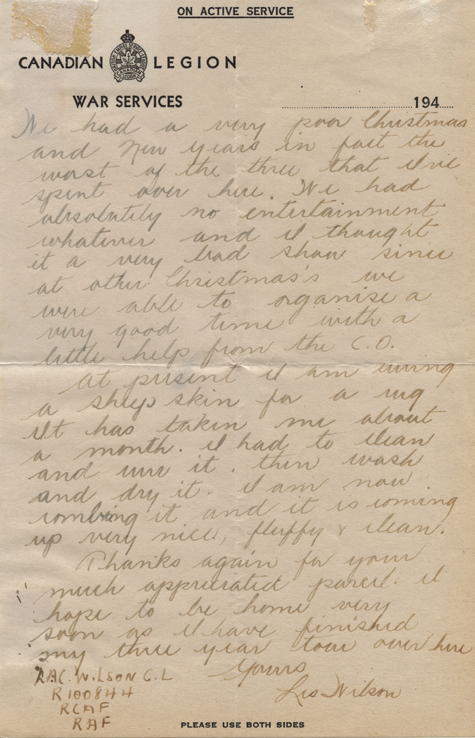 ON ACTIVE SERVICE
CANADIAN LEGION
WAR SERVICES
194
We had a very poor Christmas
and New Years in fact the
worst of the three that I've
spent over here. We had
absolutely no entertainment
whatever and I thought
it a very bad show since
at other Christmas's we
were able to organise a
very good time with a
little help from the C.O.
At present I am curing
a sheep skin for a rug
It has taken me about
a month. I had to clean
and cure it. then wash
and dry it. I am now
combing it and it is coming
up very nice, fluffy & clean.
Thanks again for your
much appreciated parcel. I
hope to be home very
soon as I have finished
my three year tour over here
Yours
Les Wilson
WILSON C.L
R100844
RCAF
RAF
PLEASE USE BOTH SIDES